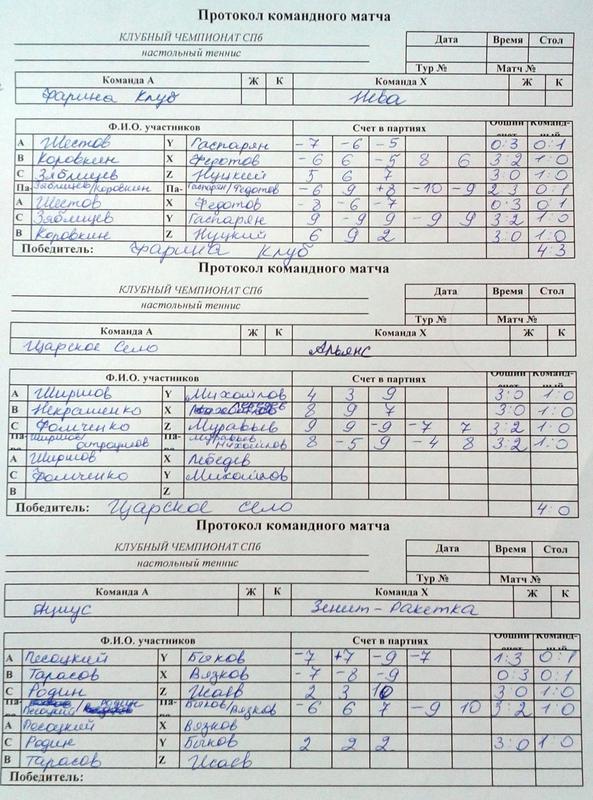 Протокол командного матча
КЛУБНЫЙ ЧЕМПИОНАТ СПб
настольный теннис
Дата Время Стол
Тур № Матч №
Команда А Ж К Команда Х Ж К
Фарина Клуб Нева
Ф.И.О. участников Счет в партиях Общий счет Команд-ный
А Шестов Y Гаспарян -7 -6 -5 0:3 0:1
В Коровкин X Федотов -6 6 -5 8 6 3:2 1:0
С Зяблицев Z Нуцкий 5 6 7 3:0 1:0
Па- Зяблицев/Коровкин Па- Гаспарян/Федотов -6 9 +8 -10 -9 2:3 0:1
А Шестов X Федотов -8 -6 -7 0:3 0:1
С Зяблицев Y Гаспарян 9 -9 9 -9 9 3:2 1:0
В Коровкин Z Нуцкий 6 9 2 3:0 1:0
Победитель: Фарина Клуб 4:3
Протокол командного матча
КЛУБНЫЙ ЧЕМПИОНАТ СПб
настольный теннис
Дата Время Стол
Тур № Матч №
Команда А Ж К Команда Х Ж К
Царское Село Альянс
Ф.И.О. участников Счет в партиях Общий счет Команд-ный
А Ширшов Y Михайлов 4 3 9 3:0 1:0
В Некрашенко X Лебедев 8 9 7 3:0 1:0
С Фомченко Z Муравьев 9 9 -9 -7 7 3:2 1:0
Па- Ширшов Па- Муравьев Михайлов 8 -5 9 -4 8 3:2 1:0
А Ширшов X Лебедев
С Фомченко Y Михайлов
В Z
Победитель: Царское село 4:0
Протокол командного матча
КЛУБНЫЙ ЧЕМПИОНАТ СПб
настольный теннис
Дата Время Стол
Тур № Матч №
Команда А Ж К Команда Х Ж К
Зенит-Ракетка
Ф.И.О. участников Счет в партиях Общий счет Команд-ный
А Песоцкий Y Быков -7 +7 -9 -7 1:3 0:1
В Тарасов X Вязков -7 -8 -9 0:3 0:1
С Родин Z Исаев 2 3 10 3:0 1:0
Па- Песоцкий / Родин Па- Быков/Вязков -6 6 7 -9 10 3:2 1:0
А Песоцкий X Вязков
С Родин Y Быков 2 2 2 3:0 1:0
В Тарасов Z Исаев
Победитель: